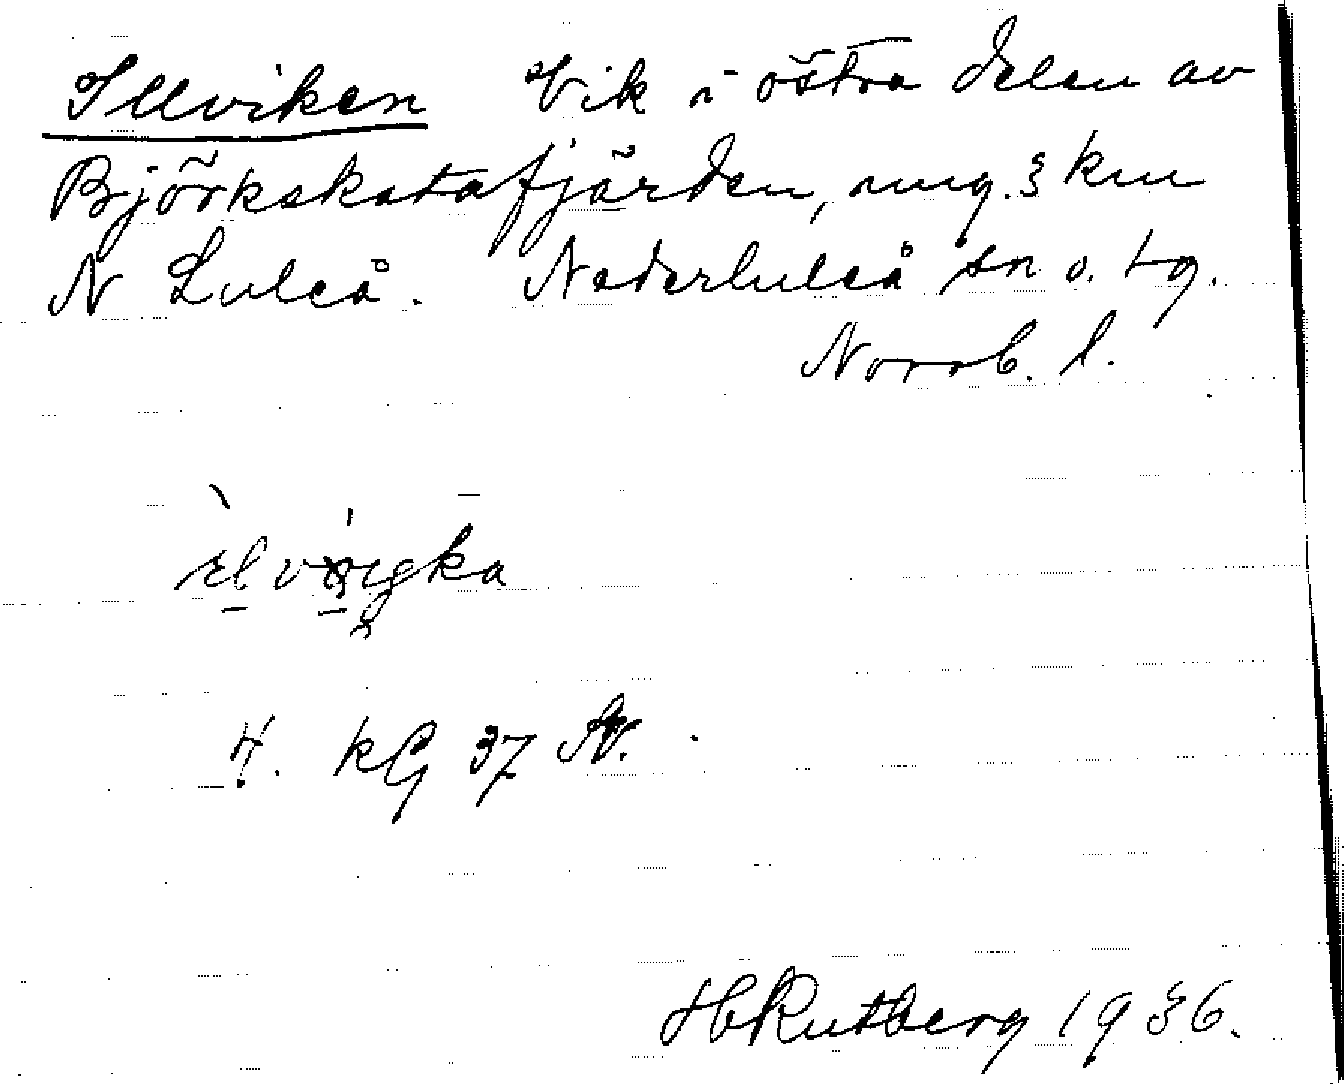 Illviken Vik i östra delen av
Björkskatafjärden, ung. 3 km
N Luleå. Nederluleå sn o. tg.
Norrb. l.
kG 37
HRutberg 1936.